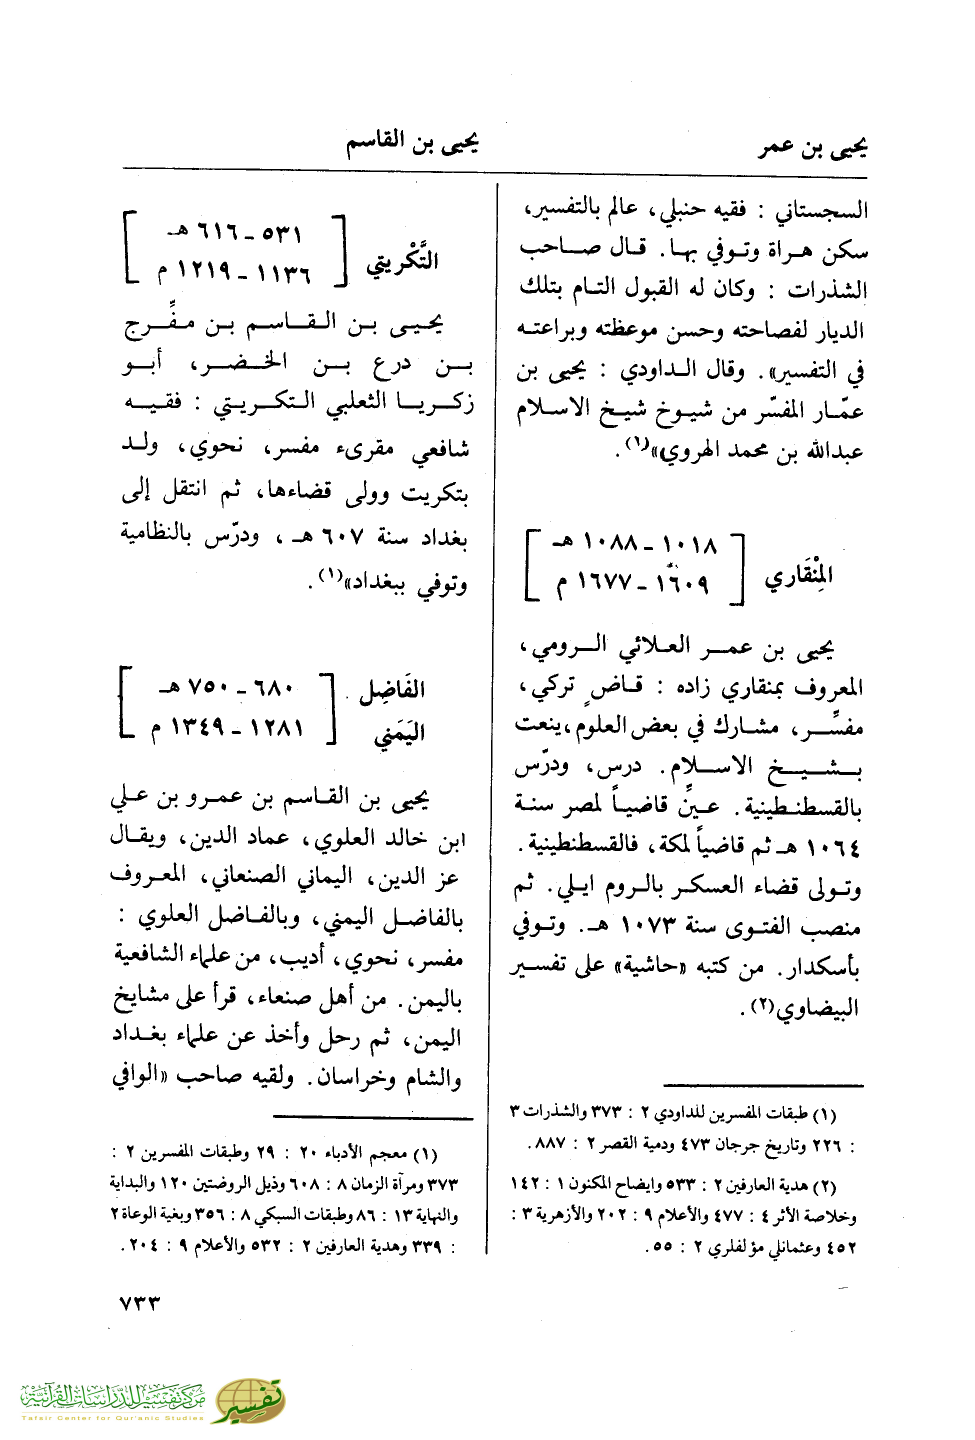 يحيى بن عمر
يحيى بن القاسم
السجستاني : فقيه حنبلي، عالم بالتفسير،
سكن هراة وتوفي بها. قال صاحب
الشذرات : وكان له القبول التام بتلك
الديار لفصاحته وحسن موعظته وبراعته
في التفسير». وقال الداودي : يحيى بن
عمّار المفسّر من شيوخ شيخ الاسلام
عبدالله بن محمد الهروي»(١).
المِنْقَاري
[ ١٠١٨ ـ ١٠٨٨ هـ
١٦٠٩ ـ ١٦٧٧ م ]
يحيى بن عمر العلائي الرومي،
المعروف بمنقاري زاده : قاضٍ تركي،
مفسِّر، مشارك في بعض العلوم، ينعت
بشيخ الاسلام. درس، ودرّس
بالقسطنطينية. عيِّن قاضياً لمصر سنة
١٠٦٤ هـ ثم قاضياً لمكة، فالقسطنطينية.
وتولى قضاء العسكر بالروم ايلي. ثم
منصب الفتوى سنة ١٠٧٣ هـ. وتوفي
بأسكدار. من كتبه «حاشية» على تفسير
البيضاوي(٢).
(١) طبقات المفسرين للداودي ٢ : ٣٧٣ والشذرات ٣
: ٢٢٦ وتاريخ جرجان ٤٧٣ ودمية القصر ٢ : ٨٨٧.
(٢) هدية العارفين ٢ : ٥٣٣ وايضاح المكنون ١ : ١٤٢
وخلاصة الأثر ٤ : ٤٧٧ والأعلام ٩ : ٢٠٢ والأزهرية ٣ :
٤٥٢ وعثمانلي مؤلفلري ٢ : ٥٥.
التَّكْريتي
[ ٥٣١ ـ ٦١٦ هـ
١١٣٦ ـ ١٢١٩ م ]
يحيى بن القاسم بن مفِّرج
بن درع بن الخضر، أبو
زكريا الثعلبي التكريتي : فقيه
شافعي مقرىء مفسر، نحوي، ولد
بتكريت وولى قضاءها، ثم انتقل إلى
بغداد سنة ٦٠٧ هـ، ودرّس بالنظامية
وتوفي ببغداد»(١).
الفَاضِل
اليَمَني
[ ٦٨٠ ـ ٧٥٠ هـ
١٢٨١ ـ ١٣٤٩ م ]
يحيى بن القاسم بن عمرو بن علي
ابن خالد العلوي، عماد الدين، ويقال
عز الدين، اليماني الصنعاني، المعروف
بالفاضل اليمني، وبالفاضل العلوي :
مفسر، نحوي، أديب، من علماء الشافعية
باليمن. من أهل صنعاء، قرأ على مشايخ
اليمن، ثم رحل وأخذ عن علماء بغداد
والشام وخراسان. ولقيه صاحب «الوافي
(١) معجم الأدباء ٢٠ : ٢٩ وطبقات المفسرين ٢ :
٣٧٣ ومرآة الزمان ٨ : ٦٠٨ وذيل الروضتين ١٢٠ والبداية
والنهاية ١٣ : ٨٦ وطبقات السبكي ٨ : ٣٥٦ وبغية الوعاة ٢
: ٣٣٩ وهدية العارفين ٢ : ٥٣٢ والأعلام ٩ : ٢٠٤.
٧٣٣
مركز تفسير للدراسات القرآنية
Tafsir Center for Qur'anic Studies
تفسير